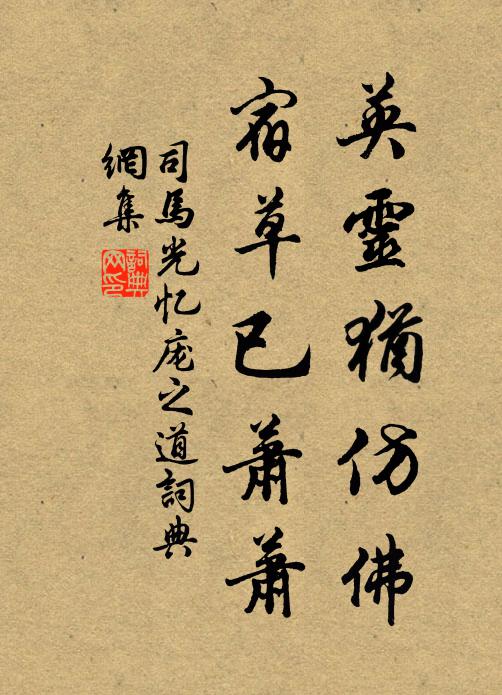 英靈猶仿佛
宿草已蕭蕭
司馬光忆庞之道詞典
網集
詞典网印